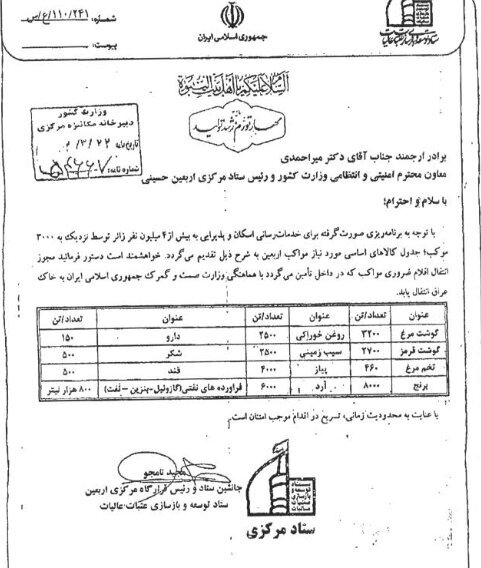 شماره: ۱۱۰/۲۴۱/ع/ص
پیوست:
جمهوری اسلامی ایران
السلام علیکم یا اهل بیت النبوة
مهار تورم رشد تولید
وزارت کشور
دبیرخانه مکانیزه مرکزی
تاریخ نامه
شماره نامه:
برادر ارجمند جناب آقای دکتر میراحمدی
معاون محترم امنیتی و انتظامی وزارت کشور و رئیس ستاد مرکزی اربعین حسینی
با سلام و احترام؛
با توجه به برنامه‌ریزی صورت‌گرفته برای خدمات‌رسانی اسکان و پذیرایی به بیش از ۴ میلیون نفر زائر توسط نزدیک به ۳۰۰۰
موکب؛ جدول کالاهای اساسی مورد نیاز مواکب اربعین به شرح ذیل تقدیم می‌گردد. خواهشمند است دستور فرمائید مجوز
انتقال اقلام ضروری مواکب که در داخل تأمین می‌گردد با هماهنگی وزارت صمت و گمرک جمهوری اسلامی ایران به خاک
عراق انتقال یابد.
عنوان تعداد/تن عنوان تعداد/تن عنوان تعداد/تن
گوشت مرغ ۳۲۰۰ روغن خوراکی ۲۵۰۰ دارو ۱۵۰
گوشت قرمز ۲۷۰۰ سیب زمینی ۲۵۰۰ شکر ۵۰۰
تخم مرغ ۴۶۰ پیاز ۴۰۰۰ قند ۵۰۰
برنج ۸۰۰۰ آرد ۶۰۰۰ فراورده های نفتی(گازوئیل-بنزین-نفت) ۸۰۰ هزار لیتر
با عنایت به محدودیت زمانی، تسریع در اقدام موجب امتنان است.
مجید نامجو
جانشین ستاد و رئیس قرارگاه مرکزی اربعین
ستاد توسعه و بازسازی عتبات عالیات
ستاد
توسعه و
بازسازی
عتبات
عالیات
ستاد مرکزی